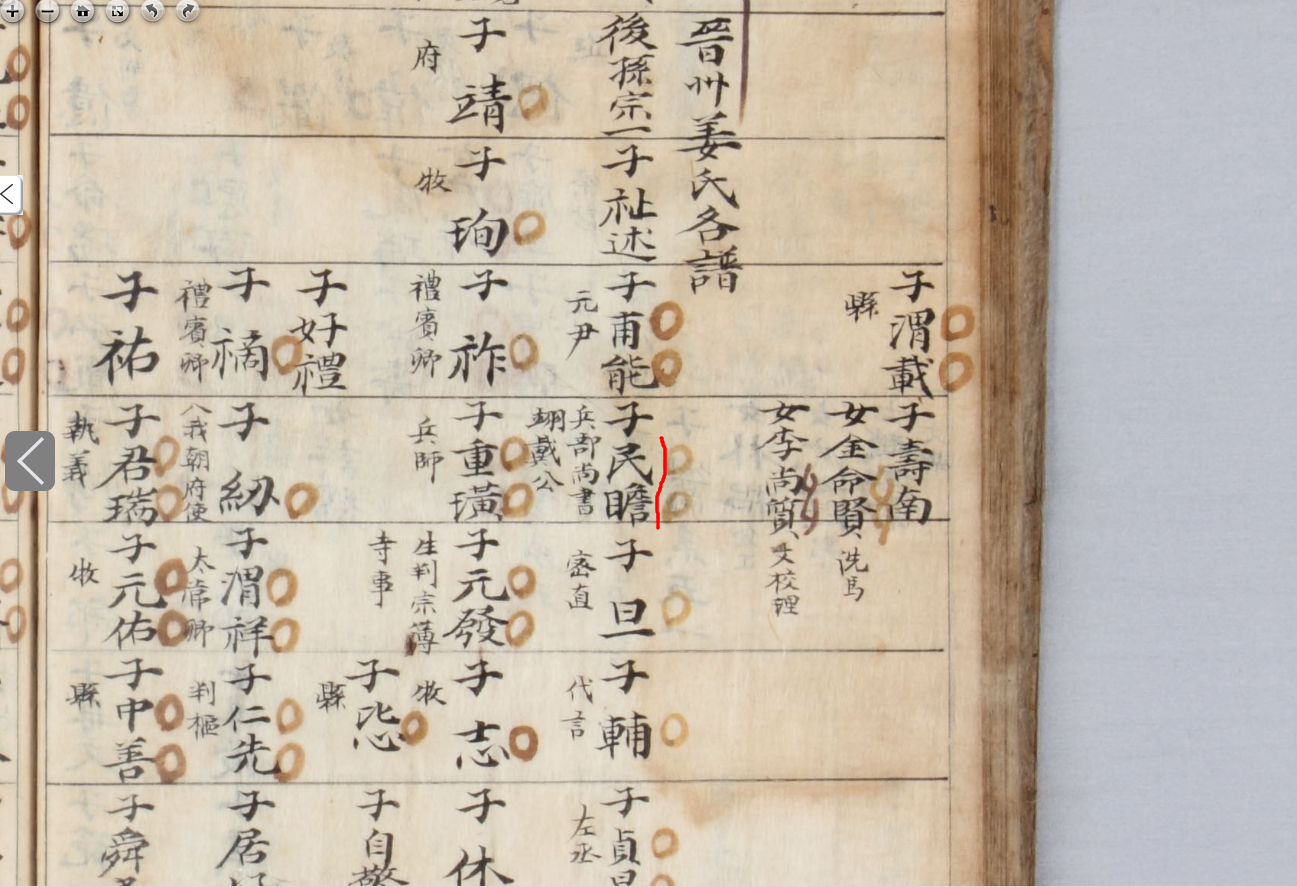 子渭載
縣
子壽南
女金命賢
洗馬
女李尚質
文校理
晉州姜氏各譜
後孫宗一
子祉述
子甫能
元尹
子民瞻
兵部尚書
翊戴公
子旦
密直
子輔
代言
子貞
左丞
子靖
府
子珣
牧
子祚
禮賓卿
子重璜
兵師
子元發
生判宗簿
寺事
子志
牧
子休
子好禮
子㤠
縣
子自警
子禧
禮賓卿
子
入我朝府使
子渭祥
太常卿
子仁先
判樞
子居
子祐
子君瑞
執義
子元佑
牧
子中善
縣
子舜